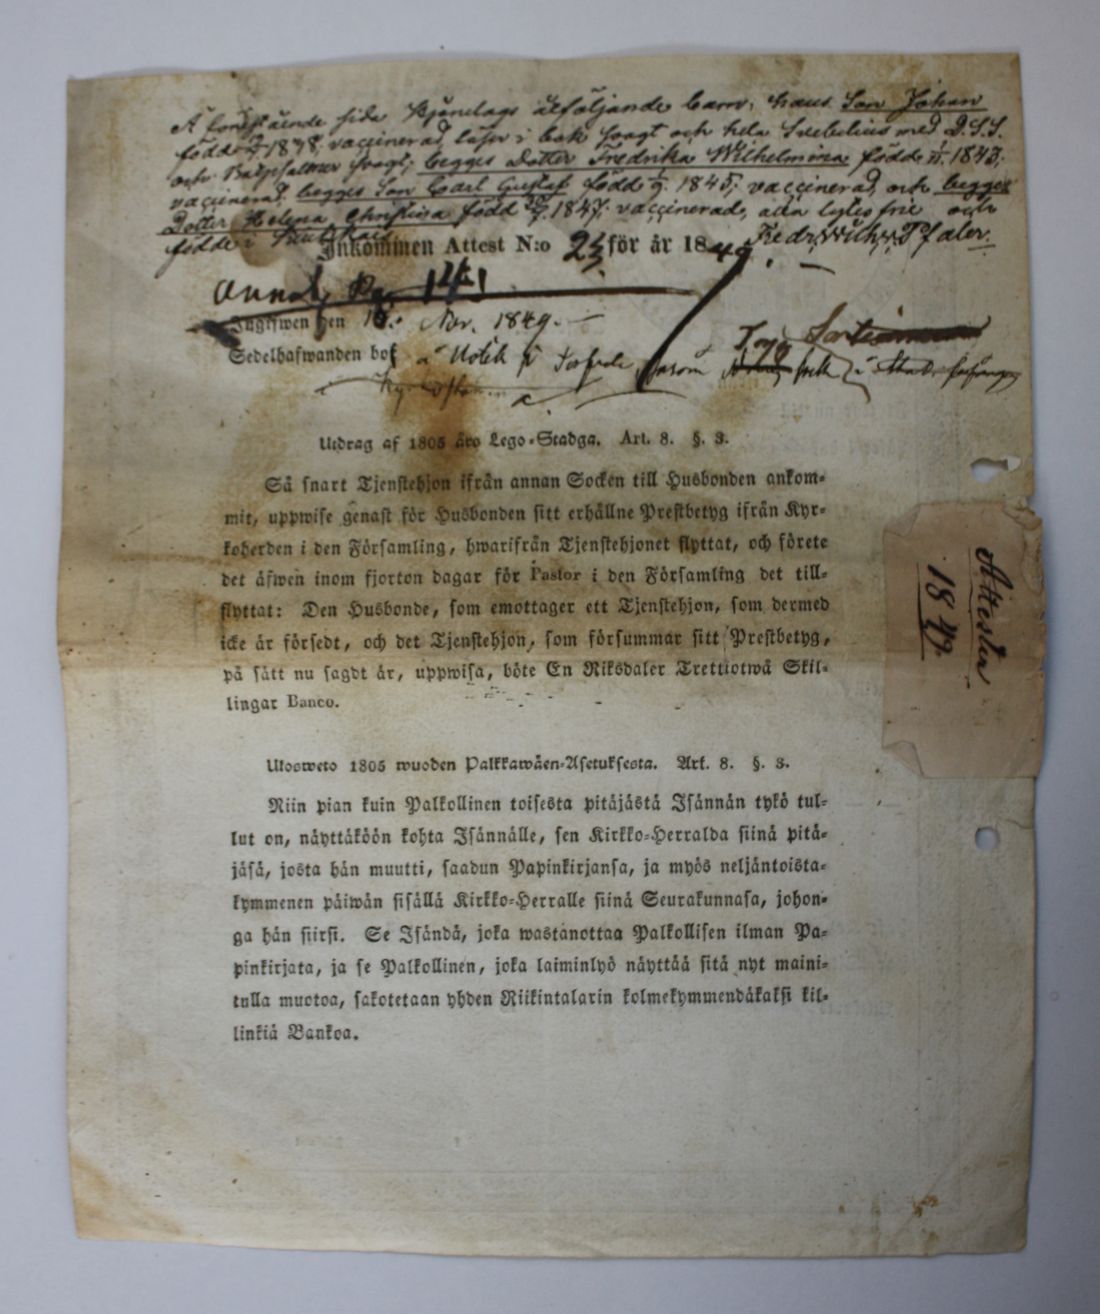 Å förestående sida åtföljande barn, hans Son Johan
född 1838, vaccinerad, läser i bok svagt och hela Svebelius med D. S. S.
och Botpsalmer svagt; begges Dotter Fredrika Wilhelmina född 1/11 1843,
vaccinerad, begges Son Carl Gustaf född 1/9 1845, vaccinerad, och begges
Dotter Helena Christina född 1847, vaccinerad, alla lytes frie och
födde i
Fredr. Wilh. Pfaler.
Inkommen Attest N:o 23 för år 1849.
Annot. Pag. 141
Ingifwen den 18. Nov. 1849.
Sedelhafwanden bor å i
Utdrag af 1805 års Lego-Stadga. Art. 8. §. 3.
Så snart Tjenstehjon ifrån annan Socken till Husbonden ankom-
mit, uppwise genast för Husbonden sitt erhållne Prestbetyg ifrån Kyr-
koherden i den Församling, hwarifrån Tjenstehjonet flyttat, och förete
det äfwen inom fjorton dagar för Pastor i den Församling det till-
flyttat: Den Husbonde, som emottager ett Tjenstehjon, som dermed
icke är försedt, och det Tjenstehjon, som försummar sitt Prestbetyg,
på sätt nu sagdt är, uppwisa, böte En Riksdaler Trettiotwå Skil-
lingar Banco.
Ulosweto 1805 wuoden Palkkawäen-Asetuksesta. Art. 8. §. 3.
Niin pian kuin Palkollinen toisesta pitäjästä Isännän tykö tul-
lut on, näyttäköön kohta Isännälle, sen Kirkko-Herralda siinä pitä-
jäsä, josta hän muutti, saadun Papinkirjansa, ja myös neljäntoista-
kymmenen päiwän sisällä Kirkko-Herralle siinä Seurakunnasa, johon-
ga hän siirsi. Se Isändä, joka wastanottaa Palkollisen ilman Pa-
pinkirjata, ja se Palkollinen, joka laiminlyö näyttää sitä nyt maini-
tulla muotoa, sakotetaan yhden Riikintalarin kolmekymmendäkaksi kil-
linkiä Bankoa.
Attester
1849.